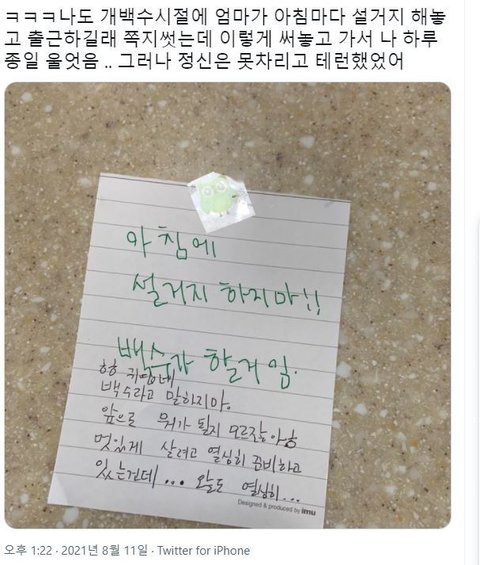 ㅋㅋㅋ나도 개백수시절에 엄마가 아침마다 설거지 해놓
고 출근하길래 쪽지썻는데 이렇게 써놓고 가서 나 하루
종일 울엇음 .. 그러나 정신은 못차리고 테런했었어
아침에
설거지 하지마!!
백수가 할거임.
ㅎㅎ 귀엽네
백수라고 말하지마.
앞으로 뭐가 될지 모르잖아
멋있게 살려고 열심히 준비하고
있는건데... 오늘도 열심히...
Designed & produced by imu
오후 1:22 · 2021년 8월 11일 · Twitter for iPhone